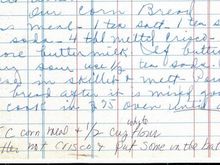 Our Corn Bread
meal - 1 tea salt - 1 tea
soda - 4 tbl melted crisco -
more buttermilk. If butter
sour use 1/2 tea soda -
in skillet & melt -
bread after it is mixed good
cook in 475 oven until
C corn meal + 1/2 C white flour
not crisco & put some in the